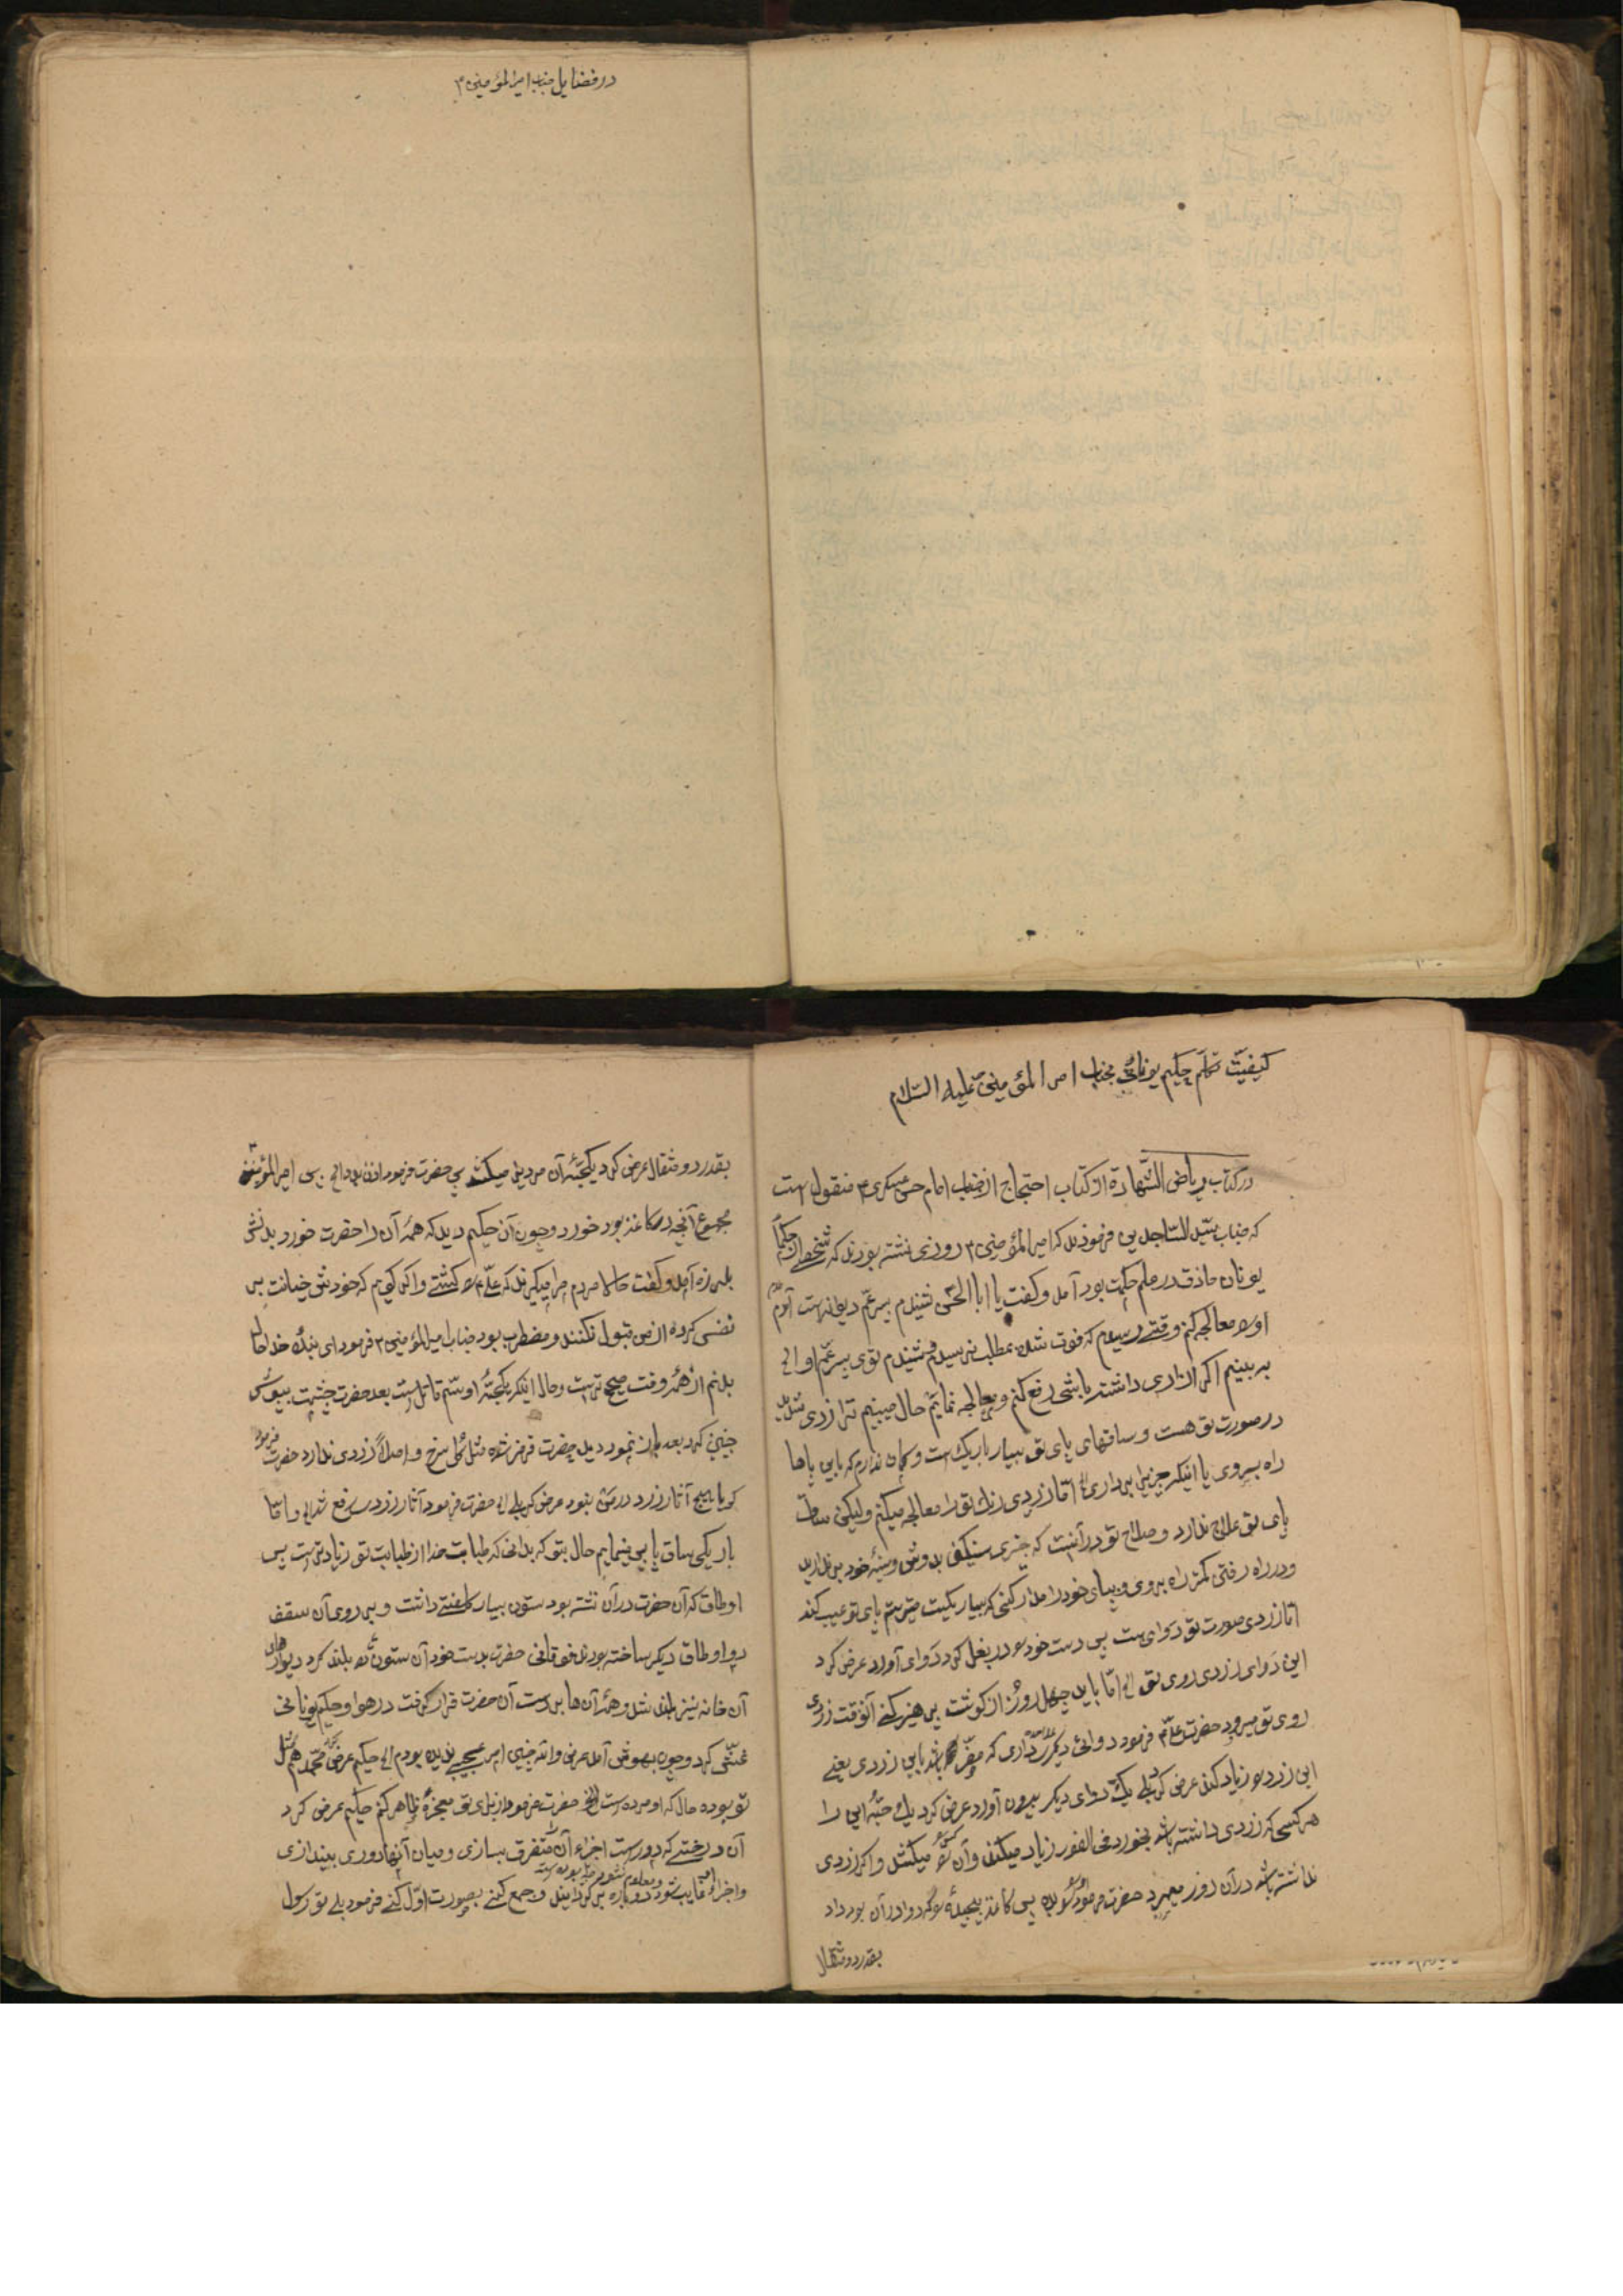 در فضایل جناب امیرالمؤمنین ۴
کیفیّت تکلّم حکیم یونانی بجناب امیرالمؤمنین علیه السّلام
در کتاب ریاض الشّهادة از کتاب احتجاج از جناب امام حسن عسکری ۴ منقول است
که جناب سیّد السّاجدین فرمودند که امیرالمؤمنین ۴ روزی نشسته بودند که شخصی از حکمآء
یونان حاذق در علم حکمت بود آمد و گفت یا ابا الحسن شنیدم پسر عمّ دیوانه است آمدم
او را معالجه کنم وقتی رسیدم که فوت شده بمطلب نرسیدم و شنیدم توی پسر عمّ او الی
به بینم اگر ازاری داشته باشی رفع کنم و معالجه نمایم حال میبینم ترا زردی
در صورت تو هست و ساقهای پای تو بسیار باریک است و گمان ندارم که باین پاها
راه بروی یا اینکه چیزی برداری امّا زردی رنک تو را معالجه میکنم ولیکن ساق
پای تو علاج ندارد و صلاح تو در آنست که چیزی سنگین بدوش و سینهٔ خود بر نداری
و در راه رفتن کمتر راه بروی و بپای خود مدارا کنی که بسیار باریکست میترسم پای تو عیب کند
امّا زردی صورت تو دوای هست پس دست خود در بغل کرد دوای آورد عرض کرد
این دوای زردی روی تو الی امّا باید چهل روز از گوشت پرهیز کنی آنوقت زردی
روی تو میرود حضرت علیه السلام فرمود دوائی دیگر داری که مضرّ باشد باین زردی یعنی
این زرد را زیاد کند عرض کرد بلی یک دوای دیگر بیرون آورد عرض کرد یک حبّهٔ این را
هر کسی که زردی داشته باشد بخورد فی الفور زیاد میکند و آن کس را میکشد و اگر زردی
نداشته باشد در آن روز میمیرد حضرت فرمود بده پس کاغذ پیچیدهٔ که دوا در آن بود داد
بقدر دو مثقال
بقدر دو مثقال عرض کرد یکحبّهٔ آن مرد میکشد پس حضرت فرمود پس امیرالمؤمنین ۴
مجموع آنچه در کاغذ بود خورد و چون آن حکیم دید که همهٔ آن را حضرت خورد بدنش
بلرزه آمد و گفت حالا مردم مرا میگیرند که علی را کشتی و اگر گویم که خودش خیانت بر
نفس کرده از من قبول نکنند و مضطرب بود جناب امیرالمؤمنین ۴ فرمود ای بندهٔ خدا حالا
بدنم از همه وقت صحیح تر است و حال اینکه یکحبّهٔ او سمّ قاتل است بعد حضرت چشمت بپوش
چنین کرد بعد باز نمود دید حضرت قرمز شده مثل گل سرخ و اصلاً زردی ندارد حضرت فرمود
گویا هیچ آثار زرد در من نبود عرض کرد بلی حضرت فرمود آثار زرد رفع شد و امّا
باریکی ساق پا پس مینمایم حال بتو که بدانی که طبابت خدا از طبابت تو زیادتر است پس
اوطاق که آن حضرت در آن نشسته بود ستون بسیار کلفتی داشت و بر روی آن سقف
دو اوطاق دیگر ساخته بودند فوقانی حضرت بدست خود آن ستون را بلند کرد دیوارهای
آن خانه نیز بلند شد و همهٔ آن ها بر دست آن حضرت قرار گرفت در هوا و حکیم یونانی
غشی کرد و چون بهوش آمد عرض والله چنین امر عجیبی ندیده بودم الی حکیم عرض کرد محمّد هم مثل
تو بوده حال که او مرده است حضرت فرمود از برای تو معجزهٔ ظاهر کنم حکیم عرض کرد
آن درختی که دور است اجزاء آن را متفرق بسازی و میان آنها دوری بیندازی
و اجزاء او غایب شود دوباره بر گردانند و جمع کنی بصورت اوّل کنی فرمود بلی تو رسول